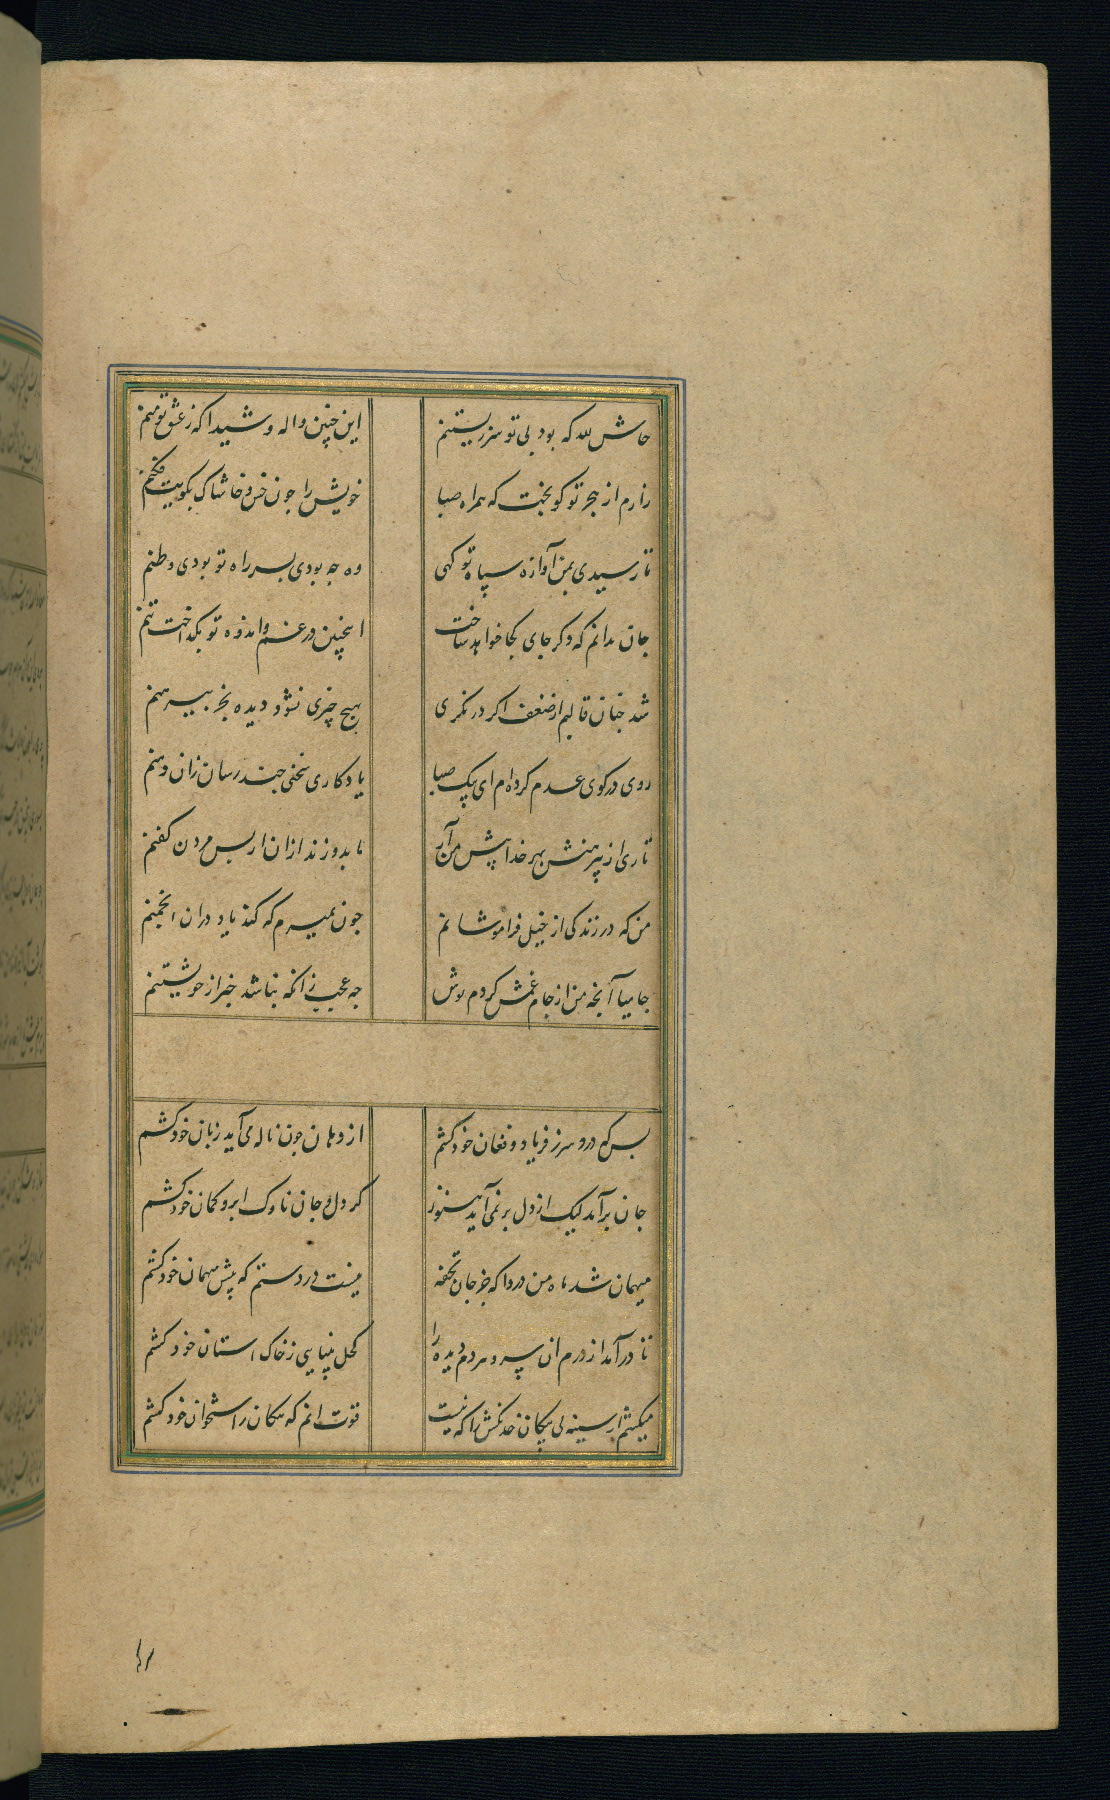 حاش لله که بود بی تو سر زیستنم این چنین واله و شیدا که ز عشق تو منم
زارم از هجر تو کو بخت که همراه صبا خویش را چون خس و خاشاک بکویت فکنم
تا رسیدی بمن آوازه سپاه تو کهی وه چه بودی بسر راه تو بودی وطنم
جان ندانم که دکر جای کجا خواهد ساخت اینچنین در غم و اندوه تو بکداخت تنم
شد چنان قالبم از ضعف اکر در نکری هیچ چیزی نشود دیده بجز پیرهنم
روی در کوی عدم کرده ام ای پیک صبا یادکاری سخنی چند رسان زان دهنم
تاری از پیرهنش بهر خدا پیش من آر تا بدوزند ازان از پس مردن کفنم
من که در زندکی از خیل فراموشانم چون بمیرم که کند یاد دران انجمنم
جامیا آنچه من از جام غمش کردم نوش چه عجب زانکه نباشد خبر از خویشتنم
بس که درد سر ز فریاد و فغان خود کشم از دهان چون ناله می آید زبان خود کشم
جان برآمد لیک از دل بر نمی آید هنوز کر دل و جان ناوک ابرو کمان خود کشم
میهمان شد ماه من دردا که جز جان تحفه نیست در دستم که پیش میهمان خود کشم
تا درآمد از درم ان سرو مردم دیده را کحل بینایی ز خاک استان خود کشم
میکشم از سینه پیکان خدنکش را که نیست قوت انم که پیکان را استخوان خود کشم